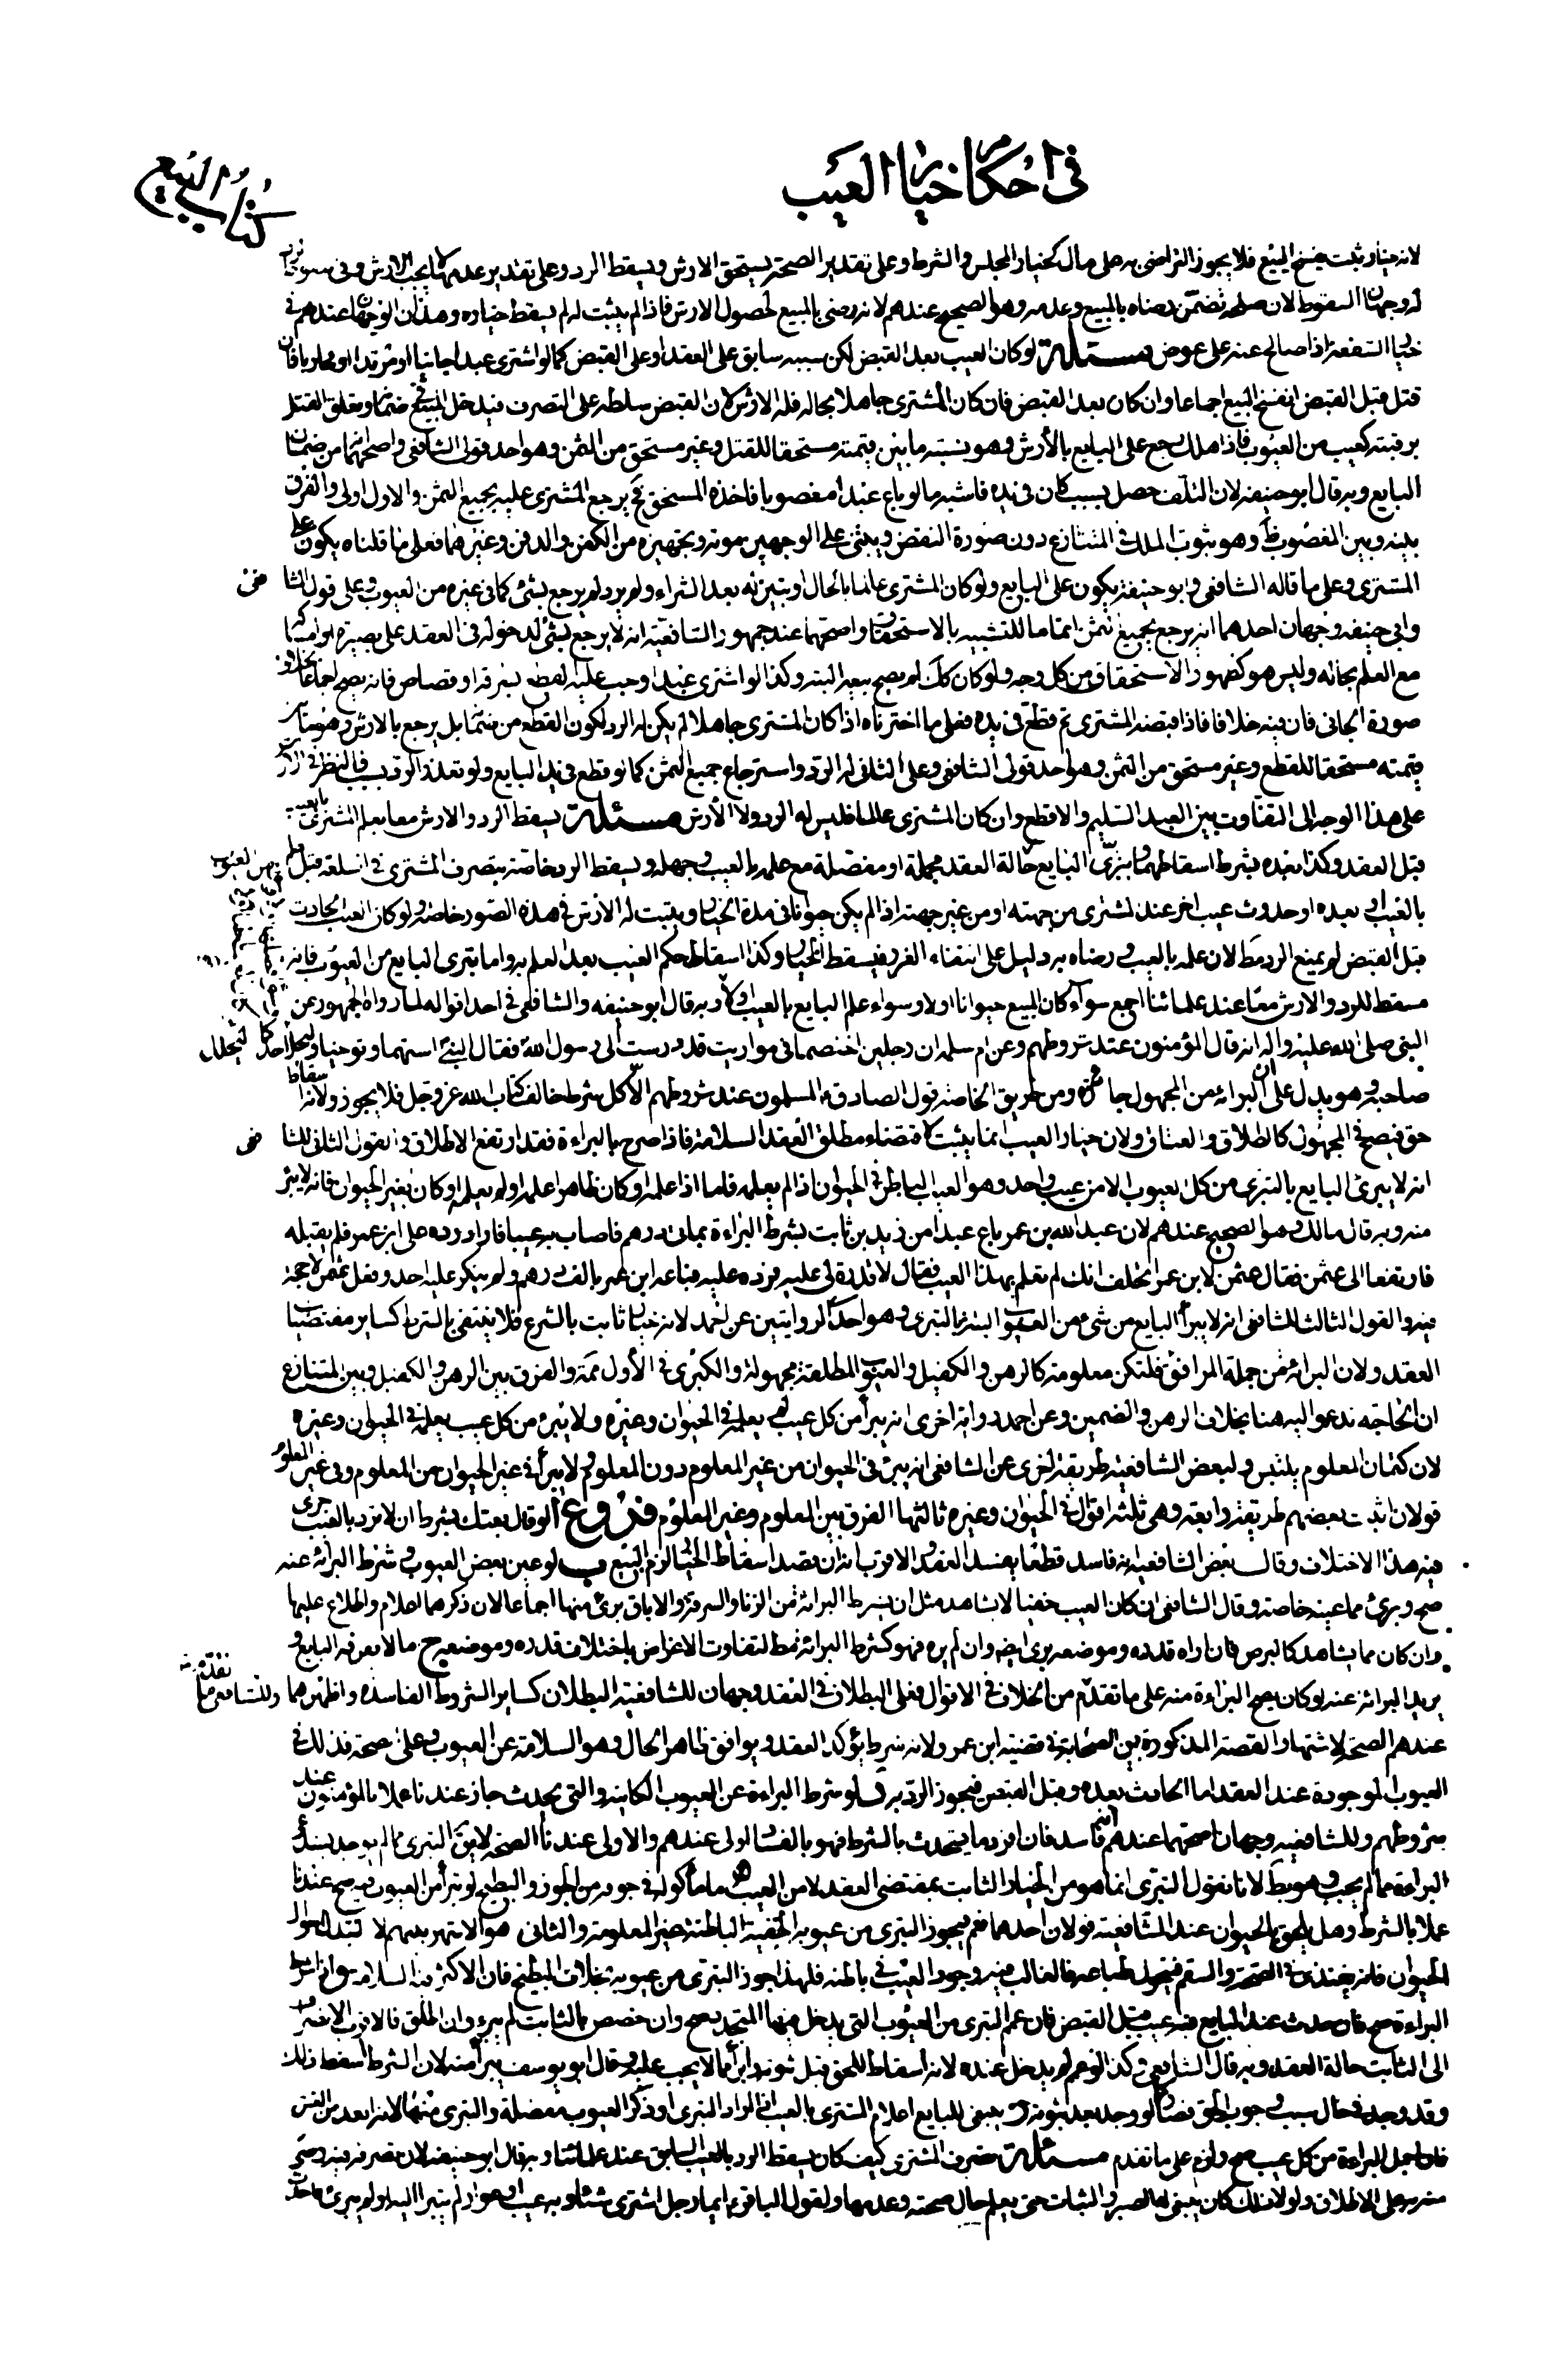 كتاب البيع
في احكام خيار العيب
لانه خيار يثبت بفسخ البيع فلا يجوز التراضي به على مال كخيار المجلس والشرط وعلى تقدير الصحة يستحق الارش ويسقط الرد وعلى تقدير عدمها لا يجب الارش وفي
له وجهان السقوط لان صلحه تضمن رضاه بالمبيع وعدمه وهو الصحيح عندهم لانه رضي بالمبيع لحصول الارش فاذا لم يثبت له لم يسقط خياره وهذان الوجهان عندهم في
خيار الشفعة اذا صالح عنه على عوض مسئلة لو كان العيب بعد القبض لكن سببه سابق على العقد او على القبض كما لو اشترى عبدا جانيا او مرتدا او محاربا فان
قتل قبل القبض انفسخ البيع اجماعا وان كان بعد القبض فان كان المشتري جاهلا بحاله فله الارش لان القبض سلطه على التصرف فيدخل المبيع في ضمانه وتعلق القتل
برقبته كعيب من العيوب فاذا هلك رجع على البايع بالأرش وهو نسبة ما بين قيمته مستحقا للقتل وغير مستحق من الثمن وهو احد قولي الشافعي واصحهما انه من ضمان
البايع وبه قال ابو حنيفة لان التلف حصل بسبب كان في يده فاشبه ما لو باع عبدا مغصوبا فاخذه المستحق فح يرجع المشتري عليه بجميع الثمن والاول اولى والفرق
بينه وبين المغصوب ظ وهو ثبوت الملك في المتنازع دون صورة النقض ويبتني على الوجهين مونة تجهيزه من الكفن والدفن وغيرهما فعلى ما قلناه يكون على
المشتري وعلى ما قاله الشافعي وابو حنيفة يكون على البايع ولو كان المشتري عالما بالحال او تبين له بعد الشراء ولم يرد لم يرجع بشئ كما في غيره من العيوب وعلى قول الشافعي
وابي حنيفة وجهان احدهما انه يرجع بجميع الثمن اتماما للتشبيه بالاستحقاق واصحهما عند جمهور الشافعية انه لا يرجع بشئ لدخوله في العقد على بصيرة او امساكه
مع العلم بحاله وليس هو كظهور الاستحقاق من كل وجه ولو كان كك لم يصح بيعه البتة وكذا لو اشترى عبدا وجب عليه القطع بسرقة او قصاص فانه يصح اجماعا بخلاف
صورة الجاني فان فيه خلافا فاذا قبضه المشتري ثم قطع في يده فعلى ما اخترناه اذا كان المشتري جاهلا لم يكن له الرد لكون القطع من ضمانه بل يرجع بالارش وهو ما بين
قيمته مستحقا للقطع وغير مستحق من الثمن وهو احد قولي الشافعي وعلى الثاني له الرد واسترجاع جميع الثمن كما لو قطع في يد البايع ولو تعذر الرد بسبب فالنظر في الارش
على هذا الوجه الى التفاوت بين العبد السليم والاقطع وان كان المشتري عالما فليس له الرد ولا الأرش مسئلة يسقط الرد والارش معا بعلم المشتري بالعيب
قبل العقد وكذا بعده بشرط اسقاطهما وبتبري البايع حالة العقد مجملة او مفصلة مع علمه بالعيب وجهله ويسقط الرد خاصة بتصرف المشتري في السلعة قبل علمه من العيوب
بالعيب او بعده او حدوث عيب اخر عند المشتري من جهته او من غير جهته اذا لم يكن حيوانا في مدة الخيار ويثبت له الارش في هذه الصور خاصة ولو كان العيب الحادث
قبل القبض لم يمنع الرد مط لان علمه بالعيب ورضاه به دليل على انتفاء الغرر فيسقط الخيار وكذا اسقاط حكم العيب بعد العلم به واما تبري البايع من العيوب فانه
مسقط للرد والارش معا عند علمائنا اجمع سواء كان المبيع حيوانا او لا وسواء علم البايع بالعيب او لا وبه قال ابو حنيفه والشافعي في احد اقواله لما رواه الجمهور عن
النبي صلى الله عليه واله انه قال المؤمنون عند شروطهم وعن ام سلمه ان رجلين اختصما في مواريث قد درست الى رسول الله فقال النبي استهما وتوخيا وليحلل احدكما
صاحبه وهو يدل على ان البرائة من المجهول جائزة ومن طريق الخاصة قول الصادق المسلمون عند شروطهم الا كل شرط خالف كتاب الله عز وجل فلا يجوز ولانه اسقاط
حق فيصح في المجهول كالطلاق والعتاق ولان خيار العيب انما يثبت لاقتضاء مطلق العقد السلامة فاذا صرح بالبراءة فقد ارتفع الاطلاق والقول الثاني للشافعي
انه لا يبرئ البايع بالتبري من كل العيوب الا من عيب واحد وهو العيب الباطن في الحيوان اذا لم يعلمه فاما اذا علمه او كان ظاهرا علمه او لم يعلمه او كان بغير الحيوان فانه لا يبرء
منه وبه قال مالك وهو الصحيح عندهم لان عبد الله بن عمر باع عبدا من زيد بن ثابت بشرط البراءة بثمانمائة درهم فاصاب به عيبا فاراد رده على ابن عمر فلم يقبله
فارتفعا الى عثمن فقال عثمن لابن عمر اتحلف انك لم تعلم بهذا العيب فقال لا فرده عليه فباعه ابن عمر بالف درهم ولم ينكر عليه احد وفعل عثمن لا حجة
فيه والقول الثالث للشافعي انه لا يبرأ البايع من شئ من العيوب البتة بالتبري وهو احد الروايتين عن احمد لانه خيار ثابت بالشرع فلا ينتفي بالشرط كساير مقتضيات
العقد ولان البرائة من جملة المرافق فلتكن معلومة كالرهن والكفيل والعيوب المطلقة مجهولة والكبرى في الأول ممنوعة والفرق بين الرهن والكفيل وبين المتنازع
ان الحاجة تدعو اليه هنا بخلاف الرهن والضمين وعن احمد رواية اخرى انه يبرأ من كل عيب لم يعلمه في الحيوان وغيره ولا يبرء من كل عيب يعلمه في الحيوان وغيره
لان كتمان المعلوم يلتبس ولبعض الشافعية طريقة اخرى عن الشافعي انه يبرئ في الحيوان من غير المعلوم دون المعلوم ولا يبرأ في غير الحيوان من المعلوم وفي غير المعلوم
قولان اثبت بعضهم طريقة رابعة وهي ثلثة اقوال في الحيوان وغيره ثالثها الفرق بين المعلوم وغير المعلوم فروع ا لو قال بعتك بشرط ان لا ترد بالعيب جرى
فيه هذا الاختلاف وقال بعض الشافعية انه فاسد قطعا يفسد العقد والاقرب انه ان قصد اسقاط الخيار لزم البيع ب لو عين بعض العيوب وشرط البرائة عنه
صح وبرئ مما عينه خاصة وقال الشافعي ان كان العيب خفيا لا يشاهد مثل ان يشرط البرائة من الزنا والسرقة والاباق برئ منها اجماعا لان ذكرها اعلام واطلاع عليها
وان كان مما يشاهد كالبرص فان اراه قدره وموضعه برئ ايضا وان لم يره فهو كشرط البرائة مط لتفاوت الاغراض باختلاف قدره وموضعه ج ما لا يعرفه البايع و
يريد البرائة عنه لو كان يصح البراءة منه على ما تقدم من الخلاف في الاقوال فعلى البطلان في العقد وجهان للشافعية البطلان كساير الشروط الفاسدة واظهرهما
عندهم الصحة لاشتهار القصة المذكورة بين الصحابة في قضية ابن عمر ولانه شرط يؤكد العقد ويوافق ظاهر الحال وهو السلامة عن العيوب وعلى صحته فذلك في
العيوب الموجودة عند العقد اما الحادث بعده وقبل القبض فيجوز الرد به د لو شرط البراءة عن العيوب الكاينة والتي يحدث جاز عندنا عملا بالمؤمنون عند
شروطهم وللشافعية وجهان اصحهما عندهم انه فاسد فان افرد ما يتحدث بالشرط فهو بالفساد اولى عندهم والاولى عندنا الصحة لا يق التبري مما لم يوجد يستدعي
البراءة مما لم يجب وهو بط لانا نقول التبري انما هو من الخيار الثابت بمقتضى العقد لا من العيب ه ما ماكوله في جوفه من الجوز والبطيخ لو تبرأ من العيوب فيه صح عندنا
عملا بالشرط وهل يلحق بالحيوان عند الشافعية قولان احدهما نعم فيجوز التبري من عيوبه الخفية الباطنة غير المعلومة والثاني وهو الاشهر بينهم لا لتبدل احوال
الحيوان فانه يغتذى في الصحة والسقم فيتحول طباعه فالغالب فيه وجود العيب في باطنه فلهذا جوز التبري من عيوبه بخلاف البطيخ فان الاكثر فيه السلامة و اذا شرط
البراءة صح فان حدث عند البايع فيه عيب قبل القبض فان عم التبري من العيوب التي يدخل فيها المتجدد صح وان خصص بالثابت لم يبرء وان اطلق فالاقرب الانصراف
الى الثابت حالة العقد وبه قال الشافعي وكذا لو عمم لم يدخل عنده لانه اسقاط للحق قبل ثبوته وابراء مما لا يجب عليه وقال ابو يوسف يبرأ منه لان الشرط اسقط ذلك
وقد وجد في حال سبب وجوب الحق فصار كما لو وجد بعد ثبوته ز ينبغي للبايع اعلام المشتري بالعيب ان اراد التبري او ذكر العيوب مفصلة والتبري منها لانه ابعد من الغش
فان اجمل البراءة من كل عيب صح ولزم على ما تقدم مسئلة تصرف المشتري كيف كان يسقط الرد بالعيب السابق عند علمائنا وبه قال ابو حنيفة لان تصرفه فيه رضى
منه به على الاطلاق ولولا ذلك كان ينبغي له الصبر والثبات حتى يعلم حال صحته وعدمها ولقول الباقر ايما رجل اشترى شيئا وبه عيب او عوار لم يتبرا اليه ولم يبرئ